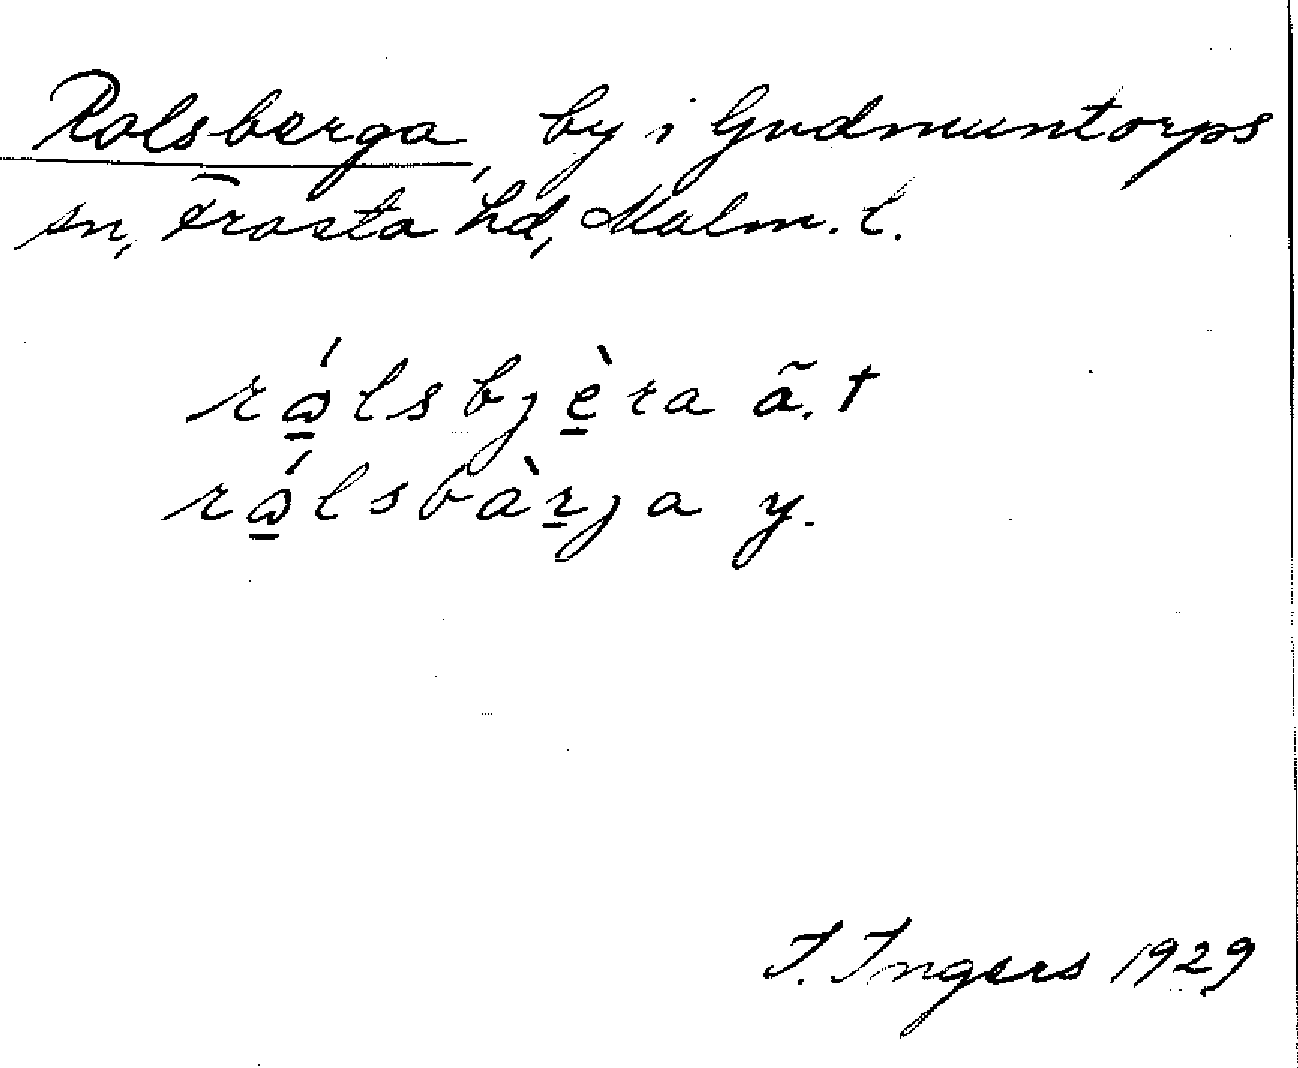 Rolsberga, by i Gudmuntorps
sn, Frosta hd, Malm. l.
rɷ̲́lsbjè̲ra ã. †
rɷ̲́lsbàr̲ja y.
I. Ingers 1929